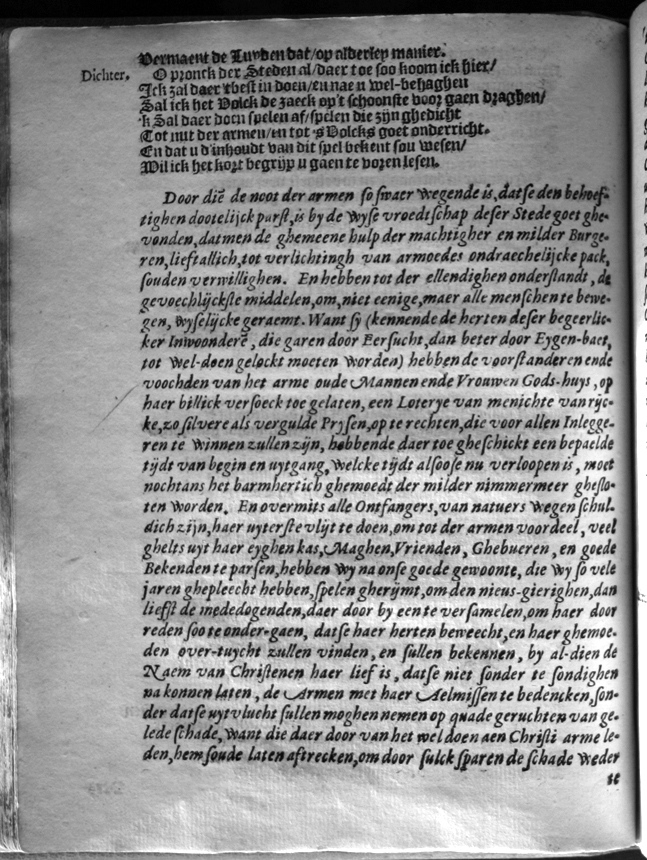 Vermaent de Luyden dat/op alderley manier.
Dichter. O pronck der Steden al/daer toe soo koom ick hier/
Ick zal daer 'tbest in doen/en nae u wel-behaghen
Sal ick het Volck de zaeck op't schoonste voor gaen draghen/
'k Sal daer doen spelen af/spelen die zijn ghedicht
Tot nut der armen/en tot 's Volcks goet onderricht.
En dat u d'inhoudt van dit spel bekent sou wesen/
Wil ick het kort begrijp u gaen te voren lesen.
Door diẽ de noot der armen so swaer wegende is, datse den behoef-
tighen dootelijck parst, is by de wyse vroedtschap deser Stede goet ghe-
vonden, datmen de ghemeene hulp der machtigher en milder Burge-
ren, lieftallich, tot verlichtingh van armoedes ondraechelijcke pack,
souden verwillighen. En hebben tot der ellendighen onderstandt, de
gevoechlijckste middelen, om, niet eenige, maer alle menschen te bewe-
gen, wyselijcke geraemt. Want sy (kennende de herten deser begeerlic-
ker Inwoonderẽ, die garen door Eersucht, dan beter door Eygen-baet,
tot wel-doen gelockt moeten worden) hebben de voorstanderen ende
voochden van het arme oude Mannen ende Vrouwen Gods-huys, op
haer billick versoeck toe gelaten, een Loterye van menichte van rijc-
ke, zo silvere als vergulde Prysen, op te rechten, die voor allen Inlegge-
ren te winnen zullen zijn, hebbende daer toe gheschickt een bepaelde
tijdt van begin en uytgang, welcke tijdt alsoose nu verloopen is, moet
nochtans het barmhertich ghemoedt der milder nimmermeer gheslo-
ten worden. En overmits alle Ontfangers, van natuers wegen schul-
dich zijn, haer uyterste vlijt te doen, om tot der armen voordeel, veel
ghelts uyt haer eyghen kas, Maghen, Vrienden, Ghebueren, en goede
Bekenden te parsen, hebben wy na onse goede gewoonte, die wy so vele
jaren ghepleecht hebben, spelen gherijmt, om den nieus-gierighen, dan
liefst de mededogenden, daer door by een te versamelen, om haer door
reden soo te onder-gaen, datse haer herten beweecht, en haer ghemoe-
den over-tuycht zullen vinden, en sullen bekennen, by al-dien de
Naem van Christenen haer lief is, datse niet sonder te sondighen
na konnen laten, de Armen met haer Aelmissen te bedencken, son-
der datse uytvlucht sullen moghen nemen op quade geruchten van ge-
lede schade, want die daer door van het wel doen aen Christi arme le-
den, hem soude laten aftrecken, om door sulck sparen de schade weder
te